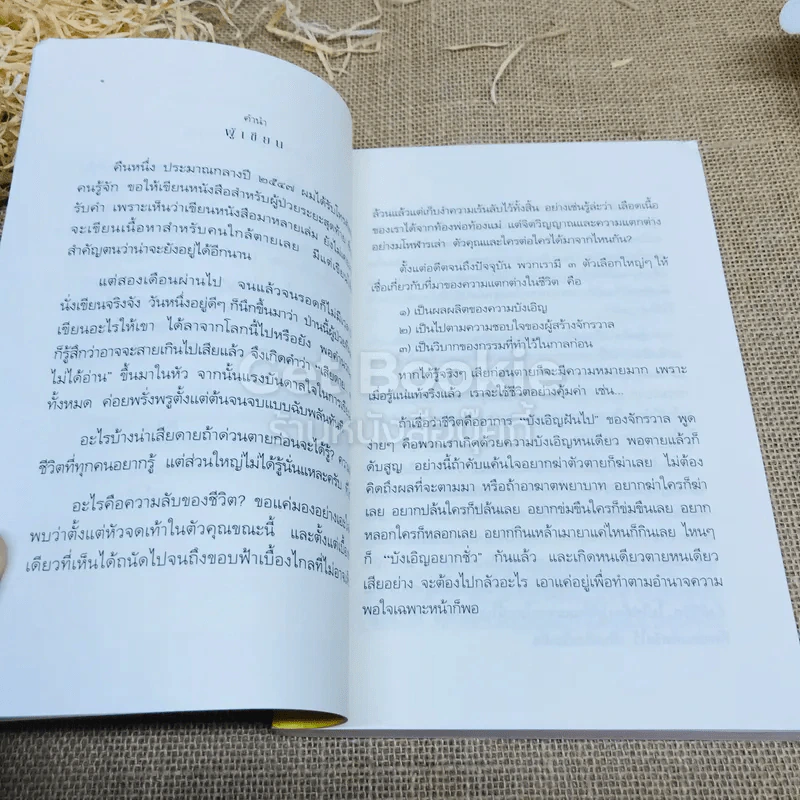 คำนำ
ผู้เขียน
คืนหนึ่ง ประมาณกลางปี ๒๕๔๗ ผมได้รับโทรศัพท์
คนรู้จัก ขอให้เขียนหนังสือสำหรับผู้ป่วยระยะสุดท้าย
รับคำ เพราะเห็นว่าเขียนหนังสือมาหลายเล่ม ยังไม่
จะเขียนเนื้อหาสำหรับคนใกล้ตายเลย มีแต่เขียน
สำคัญตนว่าน่าจะยังอยู่ได้อีกนาน
แต่สองเดือนผ่านไป จนแล้วจนรอดก็ไม่
นั่งเขียนจริงจัง วันหนึ่งอยู่ดีๆ ก็นึกขึ้นมาว่า ป่านนี้ผู้ป่วย
เขียนอะไรให้เขา ได้ลาจากโลกนี้ไปหรือยัง พอ
ก็รู้สึกว่าอาจจะสายเกินไปเสียแล้ว จึงเกิดคำว่า “เสียดาย
ไม่ได้อ่าน” ขึ้นมาในหัว จากนั้นแรงบันดาลใจในการ
ทั้งหมด ค่อยพรั่งพรูตั้งแต่ต้นจนจบแบบฉับพลันทันที
อะไรบ้างน่าเสียดายถ้าด่วนตายก่อนจะได้รู้?
ชีวิตที่ทุกคนอยากรู้ แต่ส่วนใหญ่ไม่ได้รู้นั่นแหละครับ
อะไรคือความลับของชีวิต? ขอแค่มองอย่าง
พบว่าตั้งแต่หัวจดเท้าในตัวคุณขณะนี้ และตั้งแต่
เดียวที่เห็นได้ถนัดไปจนถึงขอบฟ้าเบื้องไกลที่ไม่อาจ
ล้วนแล้วแต่เก็บงำความเร้นลับไว้ทั้งสิ้น อย่างเช่นรู้ล่ะว่า เลือดเนื้อ
ของเราได้จากท้องพ่อท้องแม่ แต่จิตวิญญาณและความแตกต่าง
อย่างมโหฬารเล่า ตัวคุณและใครต่อใครได้มาจากไหนกัน?
ตั้งแต่อดีตจนถึงปัจจุบัน พวกเรามี ๓ ตัวเลือกใหญ่ๆ ให้
เชื่อเกี่ยวกับที่มาของความแตกต่างในชีวิต คือ
๑) เป็นผลผลิตของความบังเอิญ
๒) เป็นไปตามความชอบใจของผู้สร้างจักรวาล
๓) เป็นวิบากของกรรมที่ทำไว้ในกาลก่อน
หากได้รู้จริงๆ เสียก่อนตายก็จะมีความหมายมาก เพราะ
เมื่อรู้แน่แท้จริงแล้ว เราจะใช้ชีวิตอย่างคุ้มค่า เช่น...
ถ้าเชื่อว่าชีวิตคืออาการ “บังเอิญฝันไป” ของจักรวาล พูด
ง่ายๆ คือพวกเราเกิดด้วยความบังเอิญหนเดียว พอตายแล้วก็
ดับสูญ อย่างนี้ถ้าคับแค้นใจอยากฆ่าตัวตายก็ฆ่าเลย ไม่ต้อง
คิดถึงผลที่จะตามมา หรือถ้าอาฆาตพยาบาท อยากฆ่าใครก็ฆ่า
เลย อยากปล้นใครก็ปล้นเลย อยากข่มขืนใครก็ข่มขืนเลย อยาก
หลอกใครก็หลอกเลย อยากกินเหล้าเมายาแค่ไหนก็กินเลย ไหนๆ
ก็ “บังเอิญอยากชั่ว” กันแล้ว และเกิดหนเดียวตายหนเดียว
เสียอย่าง จะต้องไปกลัวอะไร เอาแค่อยู่เพื่อทำตามอำนาจความ
พอใจเฉพาะหน้าก็พอ
Get Bookie
ร้านหนังสือบุ๊คกี้